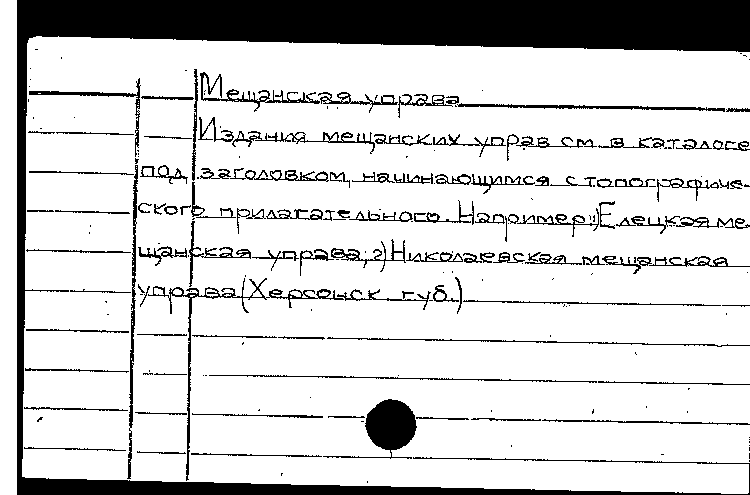 Мещанская управа
Издания мещанских управ см. в каталоге
под заголовком, начинающимся с топографиче-
ского прилагательного. Например: 1) Елецкая ме-
щанская управа, 2) Николаевская мещанская
управа (Херсонск. губ.)